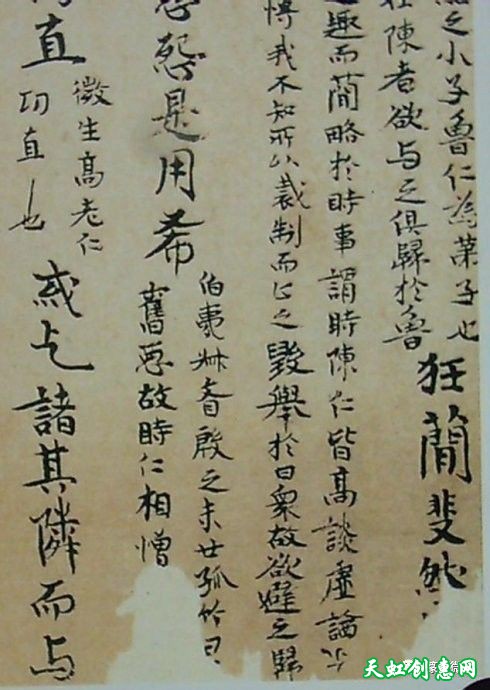 之小子魯仁為弟子也
陳者欲与之俱歸於魯
狂蕳斐然
趣而蕳略於時事謂時陳仁皆高談虛論
我不知所以裁制而止之毀舉於日衆故欲避之歸
怨是用希
伯夷叔齊殷之末世孤竹
舊惡故時仁相憎
直
微生高老仁
功直也
或乞諸其隣而与
天虹创意网